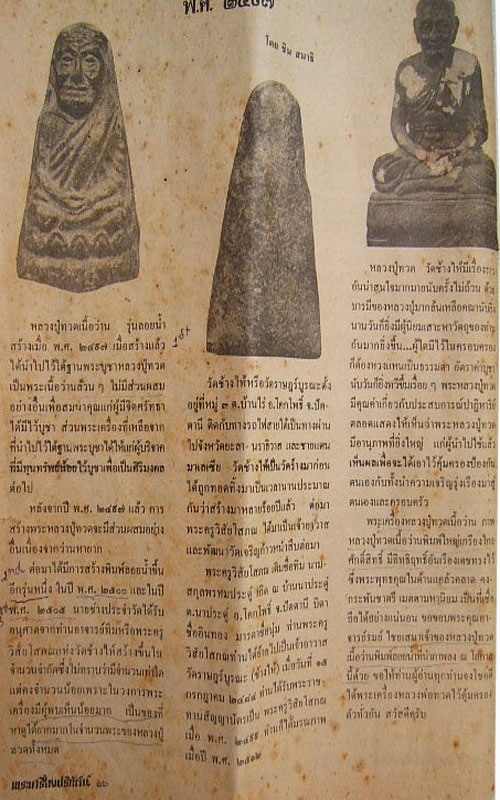 พ.ศ. ๒๔๙๗
โดย ชิน สมาธิ
หลวงปู่ทวดเนื้อว่าน รุ่นลอยน้ำ
สร้างเมื่อ พ.ศ. ๒๔๙๗ เมื่อสร้างแล้ว
ได้นำไปไว้ใต้ฐานพระบูชาหลวงปู่ทวด
เป็นพระเนื้อว่านล้วน ๆ ไม่มีส่วนผสม
อย่างอื่นเพื่อสมนาคุณแก่ผู้มีจิตศรัทธา
ได้มีไว้บูชา ส่วนพระเครื่องที่เหลือจาก
ที่นำไปไว้ใต้ฐานพระบูชาได้ให้แก่ผู้บริจาค
ที่มีทุนทรัพย์น้อยไว้บูชาเพื่อเป็นศิริมงคล
ต่อไป
หลังจากปี พ.ศ. ๒๔๙๗ แล้ว การ
สร้างพระหลวงปู่ทวดจะมีส่วนผสมอย่าง
อื่นเนื่องจากว่านหายาก
ต่อมาได้มีการสร้างพิมพ์ลอยน้ำขึ้น
อีกรุ่นหนึ่ง ในปี พ.ศ. ๒๕๐๐ และในปี
พ.ศ. ๒๕๐๕ นายช่างประจำวัดได้รับ
อนุญาตจากท่านอาจารย์ทิมหรือพระครู
วิสัยโสภณแห่งวัดช้างให้สร้างขึ้นใน
จำนวนจำกัดซึ่งไม่ทราบว่ามีจำนวนเท่าใด
แต่คงจำนวนน้อยเพราะในวงการพระ
เครื่องมีผู้พบเห็นน้อยมาก เป็นของที่
หาดูได้ยากมากในจำนวนพระของหลวงปู่
ทวดทั้งหมด
๖๖
1st
วัดช้างให้หรือวัดราษฎร์บูรณะตั้ง
อยู่ที่หมู่ ๓ ต.บ้านไร่ อ.โคกโพธิ์ จ.ปัต-
ตานี ติดกับทางรถไฟสายใต้เป็นทางผ่าน
ไปจังหวัดยะลา- นราธิวาส และชายแดน
มาเลเซีย วัดช้างให้เป็นวัดร้างมาก่อน
ได้ถูกทอดทิ้งมาเป็นเวลานานประมาณ
กันว่าสร้างมาหลายร้อยปีแล้ว ต่อมา
พระครูวิสัยโสภณ ได้มาเป็นเจ้าอาวาส
และพัฒนาวัดเจริญก้าวหน้าสืบต่อมา
พระครูวิสัยโสภณ เดิมชื่อทิม นาม-
สกุลพรหมประดู่ เกิด ณ บ้านนาประดู่
ต.นาประดู่ อ.โคกโพธิ์ จ.ปัตตานี บิดา
ชื่ออินทอง มารดาชื่อนุ่ม ท่านพระครู
วิสัยโสภณท่านได้ย้ายไปเป็นเจ้าอาวาส
วัดราษฎร์บูรณะ (ช้างให้) เมื่อวันที่ ๑๕
กรกฎาคม ๒๔๘๔ ท่านได้รับพระราช-
ทานสัญญาบัตรเป็น พระครูวิสัยโสภณ
เมื่อ พ.ศ. ๒๔๙๙ ท่านก็ได้มรณภาพ
เมื่อปี พ.ศ. ๒๕๑๒
หลวงปู่ทวด วัดช้างให้มีเรื่อง
อันน่าสนใจมากมายนับครั้งไม่ถ้วน ด้วย
บารมีของหลวงปู่มากล้นเหลือคณานับ
นานวันก็ยิ่งมีผู้นิยมเสาะหาวัตถุของท่าน
กันมากยิ่งขึ้น...ผู้ใดมีไว้ในครอบครอง
ก็ต้องหวงแหนเป็นธรรมดา อัตราค่าบูชา
นับวันก็ยิ่งทวีขึ้นเรื่อย ๆ พระหลวงปู่ทวด
มีคุณค่าเกี่ยวกับประสบการณ์ปาฏิหาริย์
ตลอดแสดงให้เห็นว่าพระหลวงปู่ทวด
มีอานุภาพที่ยิ่งใหญ่ แก่ผู้นำไปใช้แล้ว
เห็นผลเพื่อจะได้เอาไว้คุ้มครองป้องกัน
ตนเองกับทั้งนำความเจริญรุ่งเรืองมาสู่
ตนเองและครอบครัว
พระเครื่องหลวงปู่ทวดเนื้อว่าน
หลวงปู่ทวดเนื้อว่านพิมพ์ใหญ่เกรียงไกร
ศักดิ์สิทธิ์ มีอิทธิฤทธิ์อันเรืองเดชทรงไว้
ซึ่งพระพุทธคุณในด้านแคล้วคลาด คง-
กระพันชาตรี เมตตามหานิยม เป็นที่เชื่อ
ถือได้อย่างแน่นอน ขอขอบพระคุณอา-
จารย์รมย์ ไชยเสนเจ้าของหลวงปู่ทวด
เนื้อว่านพิมพ์ลอยน้ำที่นำภาพลง ณ โอกาส
นี้ด้วย ขอให้ท่านผู้อ่านทุกท่านจงโชคดี
ได้พระเครื่องหลวงพ่อทวดไว้คุ้มครอง
ตัวทั่วกัน สวัสดีครับ